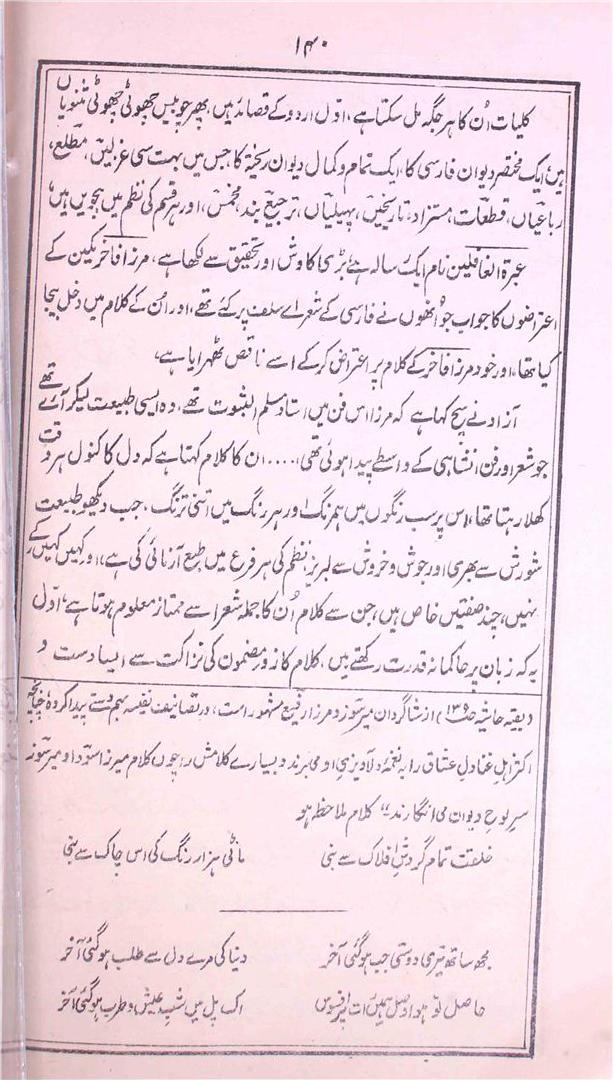 ۱۴۰
کلیات اُن کا ہر جگہ مل سکتا ہے، اوّل اردو کے قصائد ہیں، پھر چوبیس چھوٹی چھوٹی مثنویاں
ہیں ایک مختصر دیوان فارسی کا، ایک تمام و کمال دیوان ریختہ کا جس میں بہت سی غزلیں، مطلع،
رباعیاں، قطعات، مستزاد، تاریخیں، پہیلیاں، ترجیع بند، مخمس، اور ہر قسم کی نظم میں ہجویں ہیں،
عبرۃ الغافلین نام ایک رسالہ ہے بڑی کاوش اور تحقیق سے لکھا ہے، مرزا فاخر مکین کے
اعتراضوں کا جواب جو اُنھوں نے فارسی کے شعراے سلف پر کئے تھے، اور اُن کے کلام میں دخل بیجا
کیا تھا، اور خود مرزا فاخر کے کلام پر اعتراض کر کے اسے ناقص ٹھہرایا ہے،
آزاد نے سچ کہا ہے کہ مرزا اس فن میں استاد مسلم الثبوت تھے، وہ ایسی طبیعت لیکر آئے تھے
جو شعر اور فن انشا ہی کے واسطے پیدا ہوئی تھی،.... ان کا کلام کہتا ہے کہ دل کا کنول ہر وقت
کھلا رہتا تھا، اس پر سب رنگوں میں ہمرنگ اور ہر رنگ میں اپنی ترنگ، جب دیکھو طبیعت
شورش سے بھری اور جوش و خروش سے لبریز، نظم کی ہر فرع میں طبع آزمائی کی ہے، اور کہیں کہیں رکے
نہیں، چند صفتیں خاص ہیں، جن سے کلام اُن کا جملہ شعرا سے ممتاز معلوم ہوتا ہے، اوّل
یہ کہ زبان پر حاکمانہ قدرت رکھتے ہیں، کلام کا زور مضمون کی نزاکت سے ایسا دست و
(بقیہ حاشیہ ص۱۳۹) از شاگردان میر سوز و مرزا رفیع مشہور است، در تصانیف نغمہ ہم دستے پیدا کردہ، چنانچہ
اکثر اہلِ عنادلِ عشاق را بہ نغمۂ دلاویزی او می برند و بسیارے کلامش را چوں کلام میرزا سودا و میر سوز
سر لوحِ دیوان می انگارند" کلام ملاحظہ ہو
خلقت تمام گردشِ افلاک سے بنی ماٹی ہزار رنگ کی اس چاک سے بنی
مجھ ساتھ تیری دوستی جب ہو گئی آخر دنیا کی مرے دل سے طلب ہو گئی آخر
حاصل تو ہوا وصل ہمیں رات پر افسوس اک پل میں شبِ عیش و طرب ہو گئی آخر